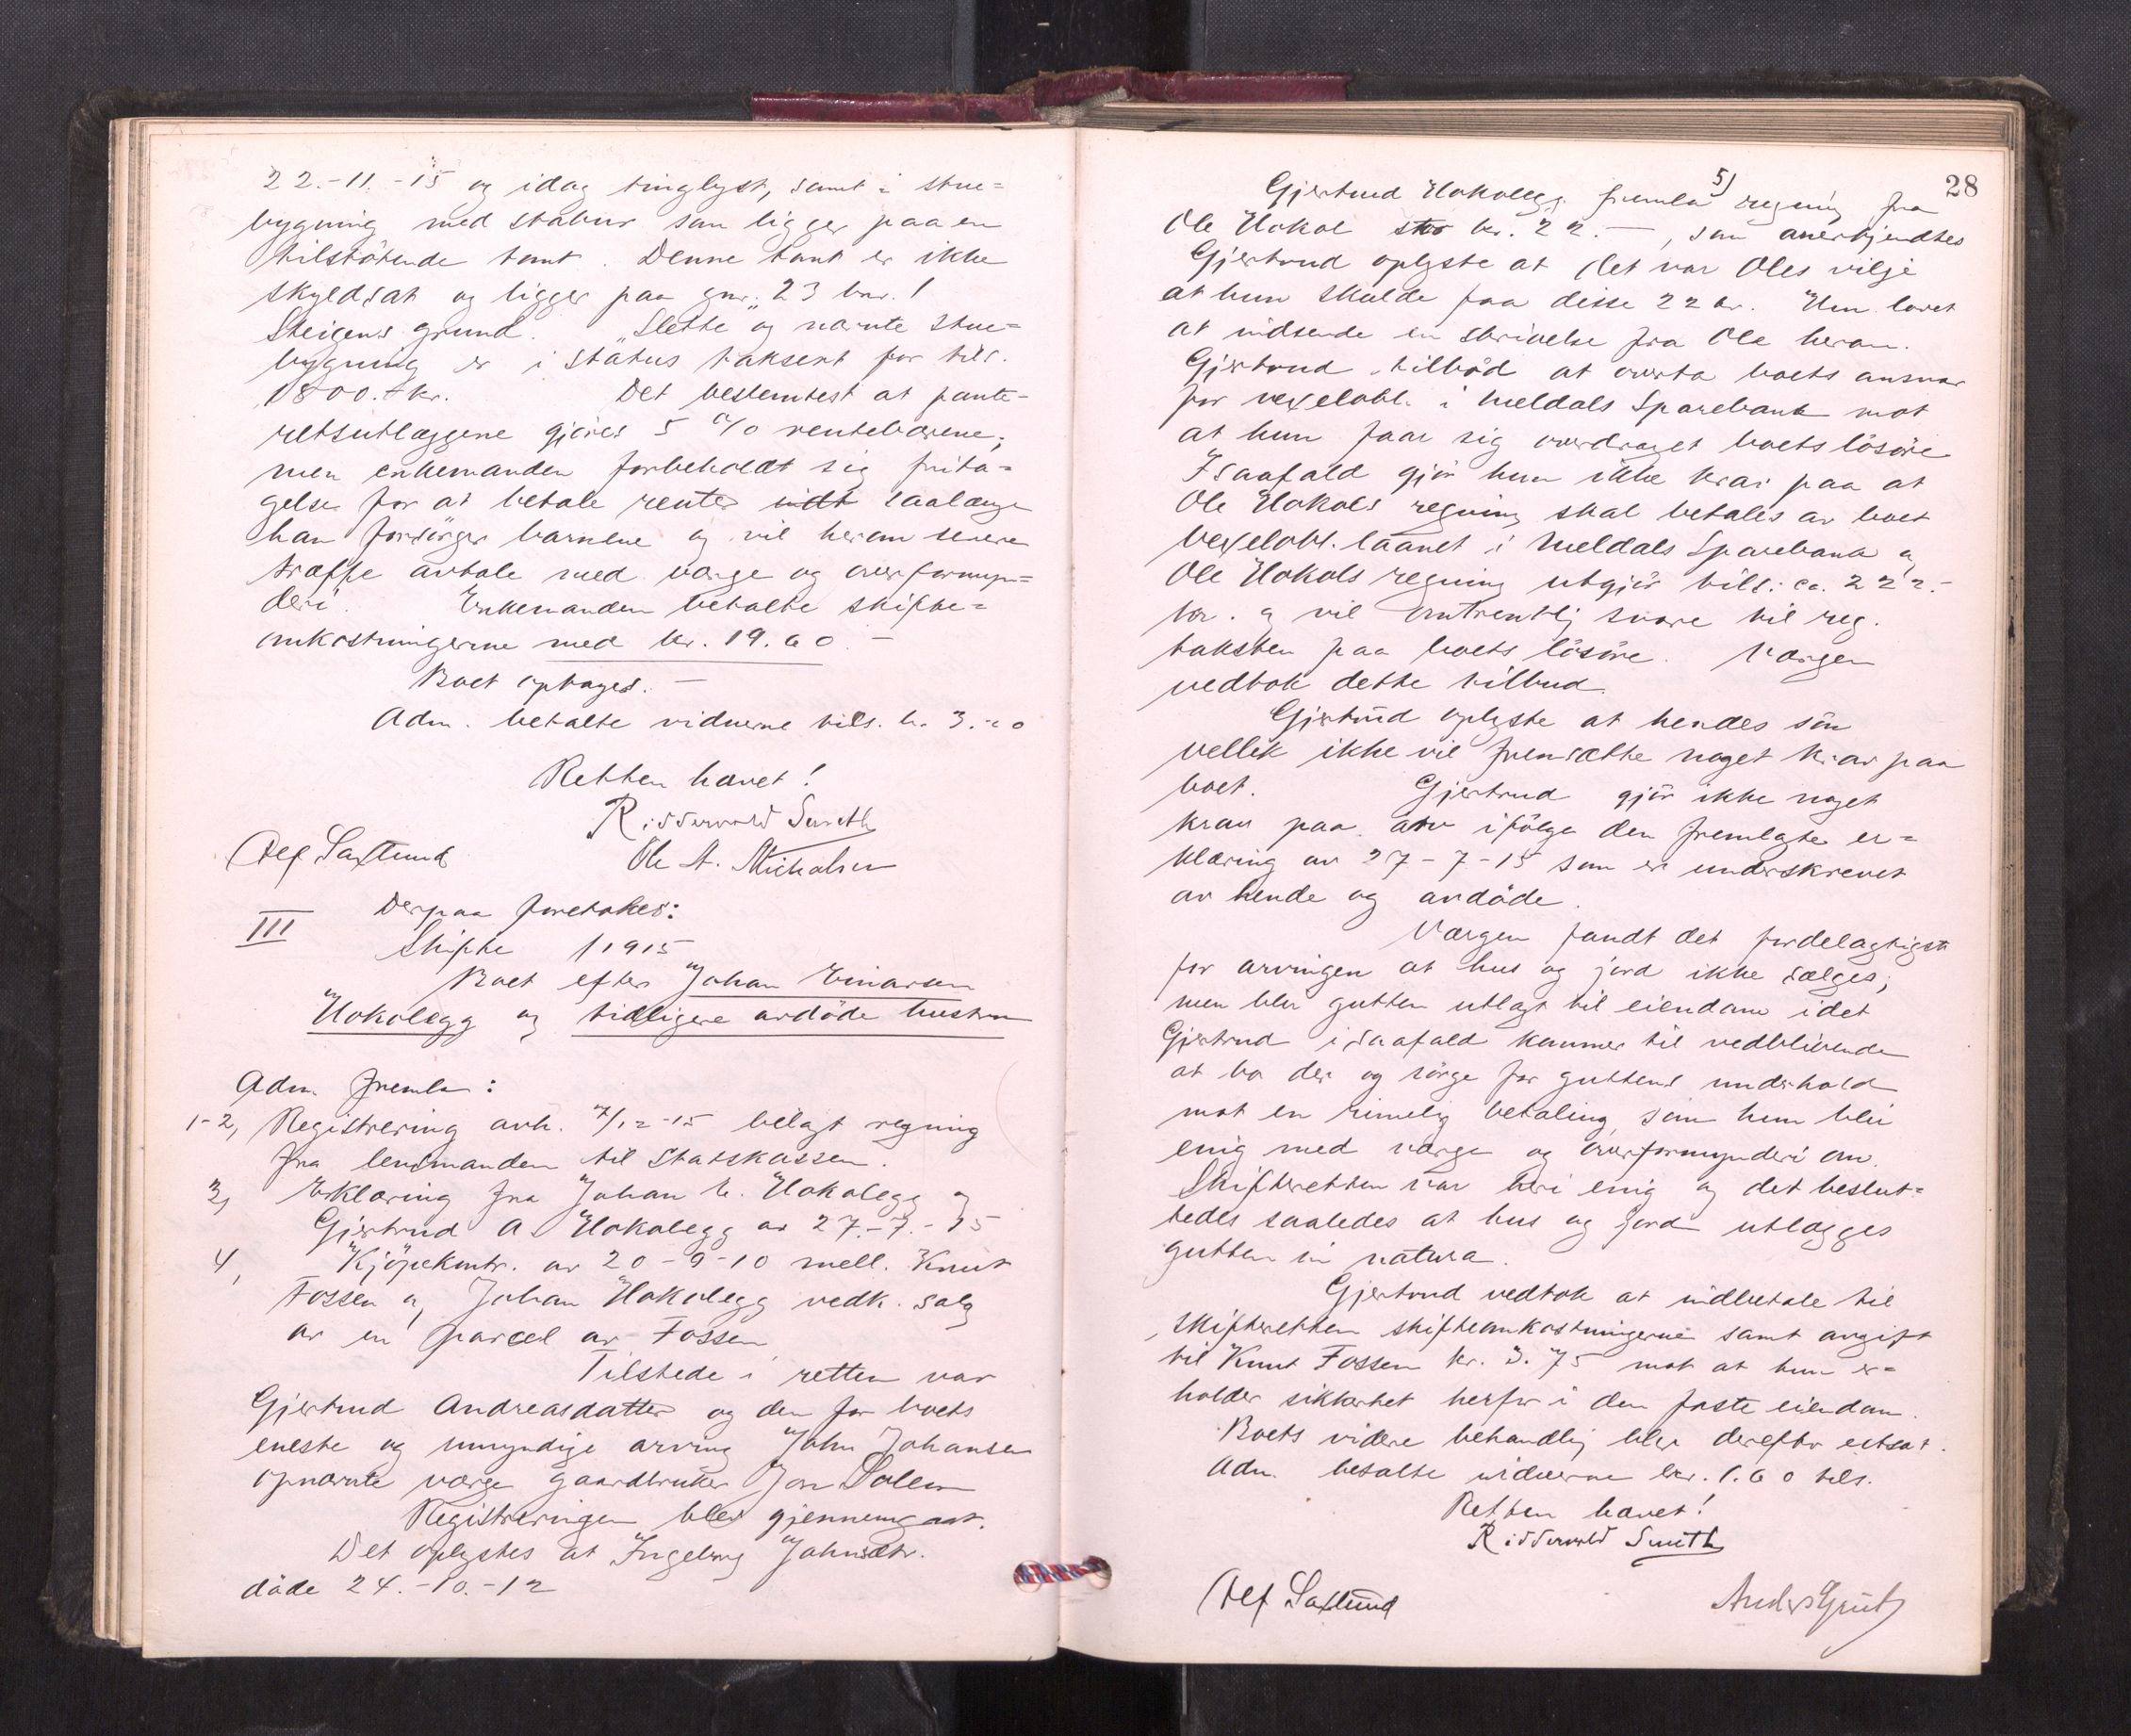 22.-11.-15 og idag tinglyst, samt i stue=
bygning med stabur som ligger paa en
tilstötende tomt. Denne tomt er ikke
skyldsat og ligger paa gnr. 23 bnr. 1
Steigens grund. "Slette" og nævnte stue=
bygning er i status taksert for tils.
1800.- kr. Det bestemtest at pante-
retsutlæggene gjöres 5 % rentebærene;
men enkemanden forbeholdt sig frita=
gelse for at betale renter saalænge
han forsörger barnene og vil herom senere
træffe avtale med værge og overformyn=
deri. Enkemanden betalte skifte=
omkostningerne med kr. 19.60.-
Boet optages.-
Adm. betalte vidnerne tils. kr. 3.20
Retten hævet!
Ridderwold Smith
Alf Saxlund Ole A. Michalsen
III Derpaa foretokes:
Skifte 1 1915
Boet efter Johan Einarsen
Hokolegg og tidligere avdöde hustru
Adm. fremla:
1-2, Registrering avh. 7/12-15 bilagt regning
fra lensmanden til Statskassen.
3, Erklæring fra Johan E. Hokolegg og
Gjertrud A Hokolegg av 27.-7.-15
4, Kjöpekontr. av 20-9-10 mell. Knut
Fossen og Johan Hokolegg vedk. salg
av en parcel av Fossen
Tilstede i retten var
Gjertrud Andreasdatter og den for boets
eneste og umyndige arving John Johansen
opnævnte værge gaardbruker Jon Solem
Registreringen blev gjennemgaat.
Det oplystes at Ingeborg Johnsdtr.
döde 24.-10.-12
28
Gjertrud Hokolegg fremla 5) regning fra
Ole Hokol stor kr. 22.-, som anerkjendtes
Gjertrud oplyste at det var Oles vilje
at hun skulde faa disse 22 kr. Hun lovet
at indsende en skrivelse fra Ole herom.
Gjertrud tilböd at overta boets ansvar
for vexelobl. i Meldals Sparebank mot
at hun faar sig overdraget boets lösöre
Isaafald gjör hun ikke krav paa at
Ole Hokols regning skal betales av boet
Vexelobl. laanet i Meldals Sparebank og
Ole Hokols regning utgjör tils: ca. 222.-
kr. og vil omtrentlig svare til reg.
taksten paa boets lösöre. Værgen
vedtok dette tilbud
Gjertrud oplyste at hendes sön
ikke vil fremsætte noget krav paa
boet. Gjertrud gjör ikke noget
krav paa arv ifölge den fremlagte er=
klæring av 27-7-15 som er underskrevet
av hende og avdöde.
Værgen fandt det fordelagtigst
for arvingen at hus og jord ikke sælges;
men blev gutten utlagt til eiendom idet
Gjertrud isaafald kommer til vedblivende
at bo der og sörge for guttens underhold
mot en rimelig betaling, som hun blir
enig med værge og overformynderi om.
Skifteretten var heri enig og det beslut=
tedes saaledes at hus og jord utlægges
gutten in natura.
Gjertrud vedtok at indbetale til
skifteretten skifteomkostningerne samt avgift
til Knut Fossen kr. 3.75 mot at hun er=
holder sikkerhet herfor i den faste eiendom.
Boets videre behandling blev derefter utsat.
Adm. betalte vidnerne kr. 1.60 tils.
Retten hævet!
Ridderwold Smith
Alf Saxlund